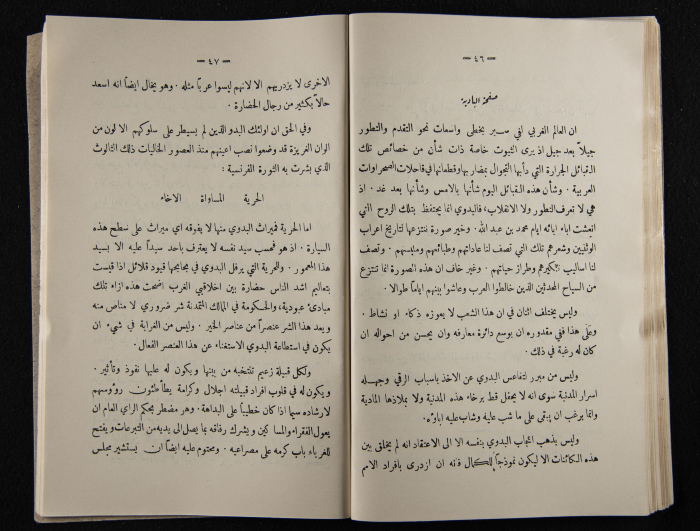 — ٤٦ —
صفحة البادية
ان العالم الغربي لفي سير بخطى واسعات نحو التقدم والتطور
جيلاً بعد جيل اذ يرى الثبوت خاصة ذات شأن من خصائص تلك
القبائل الجرارة التي دأبها التجوال بمضاربها وقطعانها في قاحلات الصحراوات
العربية . وشأن هذه القبائل اليوم شأنها بالامس وشأنها بعد غد . اذ
هي لا تعرف التطور ولا الانقلاب، فالبدوي انما يحتفظ بتلك الروح التي
انعشت اباء ابائه ايام محمد بن عبد الله . وخير صورة ننتزعها لتاريخ اعراب
الوثنيين وشعرهم تلك التي تصف لنا عاداتهم وطبائعهم وملبسهم . وتصف
لنا اساليب تفكيرهم وطراز حياتهم . وغير خاف ان هذه الصورة انما تنتزع
من السياح المحدثين الذين خالطوا العرب وعاشوا بينهم اياماً طوالا .
وليس يختلف اثنان في ان هذا الشعب لا يعوزه ذكاء او نشاط .
وعلى هذا ففي مقدوره ان يوسع دائرة معارفه وان يحسن من احواله ان
كان له رغبة في ذلك .
وليس من مبرر لتقاعس البدوي عن الاخذ باسباب الرقي وجهله
اسرار المدنية سوى انه لا يحفل قط برخاء هذه المدنية ولا بملاذها المادية
وانما يرغب ان يبقى على ما شب عليه وشاب عليه اباؤه .
وليس يذهب اعجاب البدوي بنفسه الا الى الاعتقاد انه لم يخلق بين
هذه الكائنات الا ليكون نموذجاً للكمال فانه ان ازدرى بافراد الامم
— ٤٧ —
الاخرى لا يزدريهم الا لانهم ليسوا عرباً مثله . وهو يخال ايضاً انه اسعد
حالاً بكثير من رجال الحضارة .
وفي الحق ان اولئك البدو الذين لم يسيطر على سلوكهم الا لون من
الوان الغريزة قد وضعوا نصب اعينهم منذ العصور الخاليات ذلك الثالوث
الذي بشرت به الثورة الفرنسية :
الحرية المساواة الاخاء
اما الحرية فميراث البدوي منها لا يفوقه اي ميراث على سطح هذه
السيارة . اذ هو فحسب سيد نفسه لا يعترف باحد سيداً عليه الا بسيد
هذا المعمور . والحرية التي يرفل البدوي في بحابحها قيود قلائل اذا قيست
بتعاليم اشد الناس حضارة بين اخلاقيي الغرب اضحت هذه ازاء تلك
مبادئ عبودية، والحكومة في الممالك المتمدنة شر ضروري لا مناص منه
ويعد هذا الشر عنصراً من عناصر الخير . وليس من الغرابة في شيء ان
يكون في استطاعة البدوي الاستغناء عن هذا العنصر الفعال .
ولكل قبيلة زعيم تنتخبه من بينها ويكون له عليها نفوذ وتأثير .
ويكون له في قلوب افراد قبيلته اجلال وكرامة يطأطئون رؤوسهم
لارشاده سيما اذا كان خطيباً على البداهة . وهو مضطر بحكم الراي العام ان
يعول الفقراء والمساكين ويشرك رفاقه بما يصل الى يديه من التبرعات ويفتح
للغرباء باب كرمه على مصراعيه . ومحتوم عليه ايضاً ان يستشير مجلس